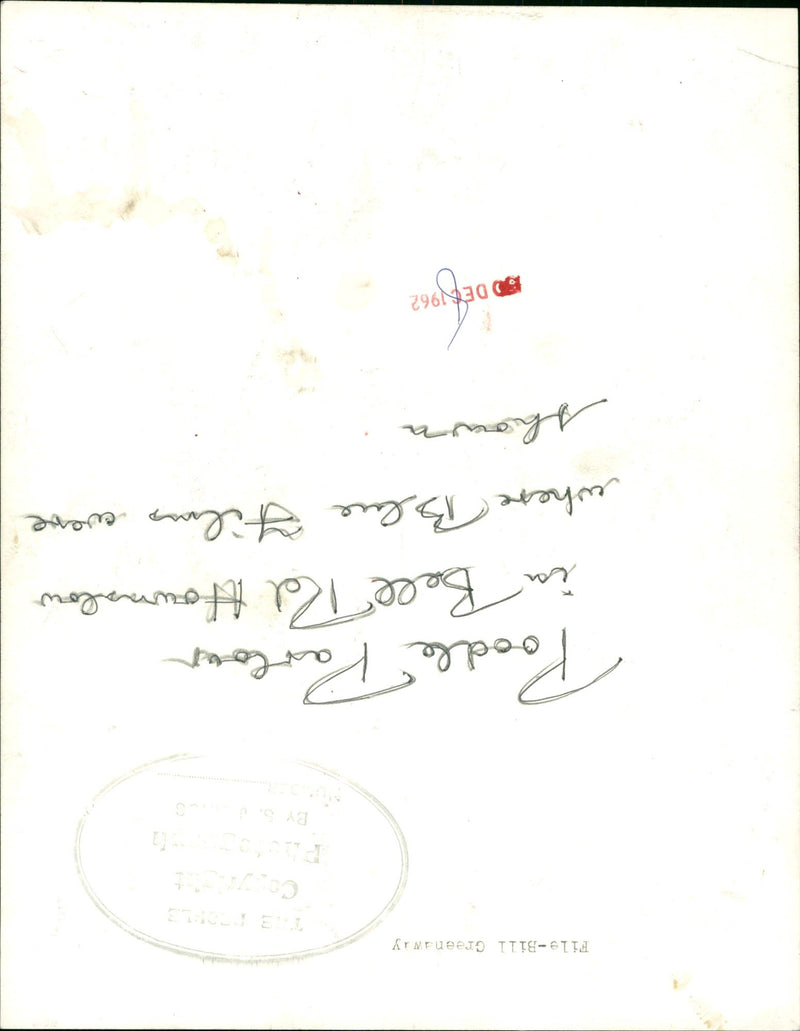 File-Bill Greenaway
THE PEOPLE
Copyright
Photograph
BY
NUMBER
Poodle Parlour
in Bell Rd Hounslow
where Blue Films were
shown
DEC 1962